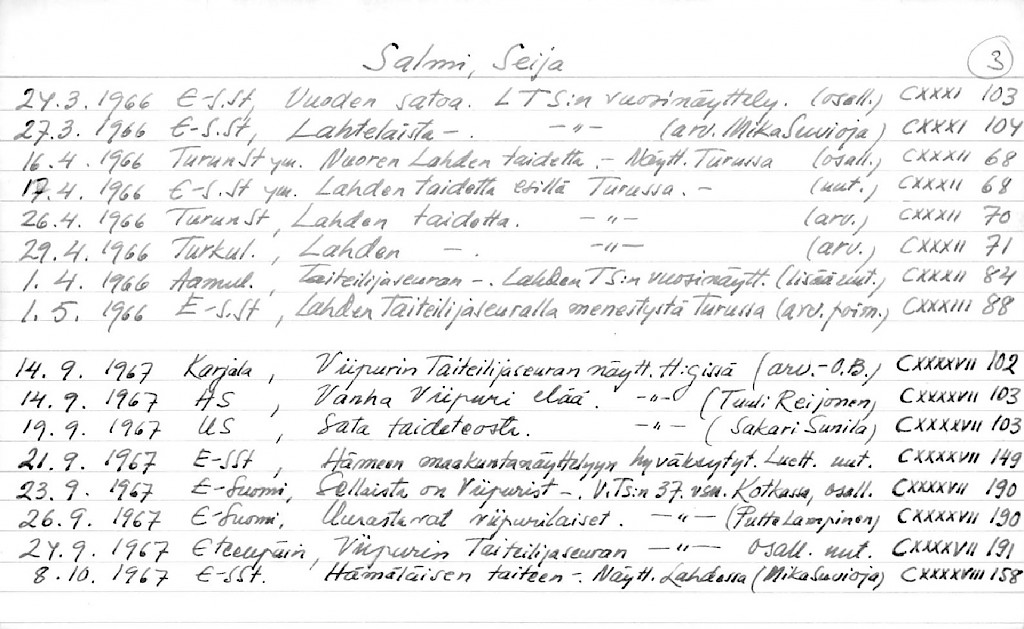 Salmi, Seija
3
24.3. 1966 E-S.St, Vuoden satoa. LTS:n vuosinäyttely. (osall.) CXXXI 103
27.3. 1966 E-S.St, Lahtelaista -. -"- (arv. Mika Suvioja) CXXXI 104
16.4. 1966 TurunSt ym. Nuoren Lahden taidetta. - Näytt. Turussa (osall.) CXXXII 68
17.4. 1966 E-S.St ym. Lahden taidetta esillä Turussa. - (uut.) CXXXII 68
26.4. 1966 TurunSt, Lahden taidetta. -"- (arv.) CXXXII 70
29.4. 1966 Turkul., Lahden - . -"- (arv.) CXXXII 71
1.4. 1966 Aamul., Taiteilijaseuran -. Lahden TS:n vuosinäytt. (lisää uut.) CXXXII 84
1.5. 1966 E-S.St, Lahden Taiteilijaseuralla menestystä Turussa (arv. poim.) CXXXIII 88
14.9. 1967 Karjala, Viipurin Taiteilijaseuran näytt. H:gissä (arv. - O.B.) CXXXXVII 102
14.9. 1967 HS, Vanha Viipuri elää. -"- (Tuuli Reijonen) CXXXXVII 103
19.9. 1967 US, Sata taideteosta. -"- (Sakari Sunila) CXXXXVII 103
21.9. 1967 E-SSt, Hämeen maakuntanäyttelyyn hyväksytyt. Luett. uut. CXXXXVII 149
23.9. 1967 E-Suomi, Sellaista on Viipurist -. V.TS:n 37. vsn. Kotkassa, osall. CXXXXVII 190
26.9. 1967 E-Suomi, Uurastavat viipurilaiset. -"- (Putte Lampinen) CXXXXVII 190
24.9. 1967 Eteenpäin, Viipurin Taiteilijaseuran -"- osall. uut. CXXXXVII 191
8.10. 1967 E-SSt. Hämäläisen taiteen -. Näytt. Lahdessa (Mika Suvioja) CXXXXVIII 158